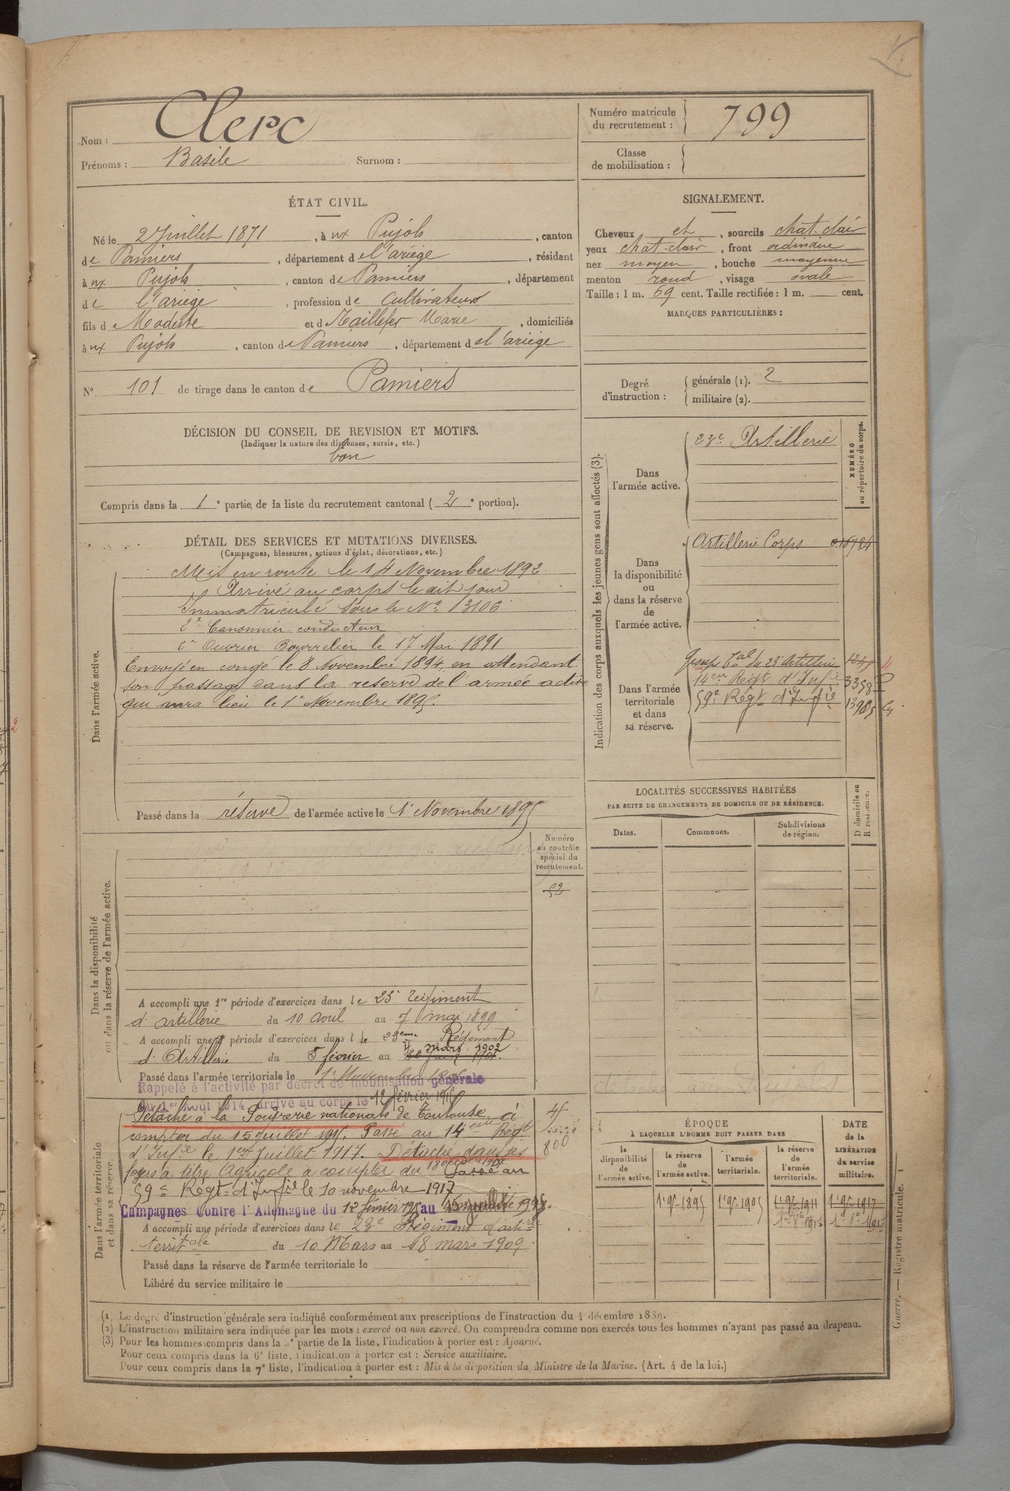 Nom : Clerc
Prénoms : Basile Surnom :
Numéro matricule du recrutement : 799
Classe de mobilisation :
ÉTAT CIVIL.
Né le 2 Juillet 1871, à ux Pujols, canton
de Pamiers, département de l'ariège, résidant
à ux Pujols, canton de Pamiers, département
de l'ariège, profession de cultivateur
fils de Modeste et de Taillefer Marie, domiciliés
à ux Pujols, canton de Pamiers, département de l'ariège
N° 101 de tirage dans le canton de Pamiers
SIGNALEMENT.
Cheveux et, sourcils chat clair
yeux chat-clair, front ordinaire
nez moyen, bouche moyenne
menton rond, visage ovale
Taille : 1 m. 69 cent. Taille rectifiée : 1 m. cent.
MARQUES PARTICULIÈRES :
Degré d'instruction :
générale (1). 2
militaire (2).
DÉCISION DU CONSEIL DE REVISION ET MOTIFS.
(Indiquer la nature des dispenses, sursis, etc.)
bon
Compris dans la 1e partie de la liste du recrutement cantonal (2e portion).
DÉTAIL DES SERVICES ET MUTATIONS DIVERSES.
(Campagnes, blessures, actions d'éclat, décorations, etc.)
Dans l'armée active.
Mis en route le 14 Novembre 1892
Arrivé au corps le dit jour
Immatriculé sous le N° 3106
2e Canonnier conducteur
Ouvrier Bourrelier le 17 Mai 1891
Envoyé en congé le 8 Novembre 1894, en attendant
son passage dans la réserve de l'armée active
qui aura lieu le 1er Novembre 1895.
Passé dans la réserve de l'armée active le 1er Novembre 1895
Indication des corps auxquels les jeunes gens sont affectés (3).
NUMÉRO au répertoire du corps.
Dans l'armée active.
23e Artillerie
Dans la disponibilité ou dans la réserve de l'armée active.
Artillerie Corps
Dans l'armée territoriale et dans sa réserve.
Groupe Tal du 23e Artillerie
14eme Régt d'Infie 3358
59e Régt d'Infie
LOCALITÉS SUCCESSIVES HABITÉES
PAR SUITE DE CHANGEMENTS DE DOMICILE OU DE RÉSIDENCE.
Dates. Communes. Subdivisions de région. D domicile ou R résidence.
Dans la disponibilité ou dans la réserve de l'armée active.
Numéro au contrôle spécial du recrutement.
A accompli une 1re période d'exercices dans le 23e Régiment
d'artillerie du 10 avril au 7 mai 1899
A accompli une période d'exercices dans le 23eme Régiment
d'Artillerie du 5 février au 4 mars 1902
Passé dans l'armée territoriale le 1er Novembre
Rappelé à l'activité par décret de mobilisation générale
du 1er août 1914, arrivé au corps le 12 février 1915
Dans l'armée territoriale et dans sa réserve.
Détaché à la Poudrerie nationale de Toulouse à
compter du 15 Juillet 1915. Passé au 14eme Régt
d'Infie le 1er Juillet 1917. Détaché dans ses
foyers à titre Agricole à compter du Passé au
59e Régt d'Infie le 10 novembre 1917
Campagnes Contre l'Allemagne du 12 février 1915 au
A accompli une période d'exercices dans le 23e Régiment d'artie
territale du 10 Mars au 18 mars 1909
Passé dans la réserve de l'armée territoriale le
Libéré du service militaire le
ÉPOQUE
À LAQUELLE L'HOMME DOIT PASSER DANS
DATE de la LIBÉRATION du service militaire.
la disponibilité de l'armée active.
la réserve de l'armée active.
l'armée territoriale.
la réserve de l'armée territoriale.
1er 9bre 1895 1er 9bre 1905 1er 9bre 1911 1er 9bre 1917
(1) Le degré d'instruction générale sera indiqué conformément aux prescriptions de l'instruction du 4 décembre 1889.
(2) L'instruction militaire sera indiquée par les mots : exercé ou non exercé. On comprendra comme non exercés tous les hommes n'ayant pas passé au drapeau.
(3) Pour les hommes compris dans la 5e partie de la liste, l'indication à porter est : Ajourné.
Pour ceux compris dans la 6e liste, l'indication à porter est : Service auxiliaire.
Pour ceux compris dans la 7e liste, l'indication à porter est : Mis à la disposition du Ministre de la Marine. (Art. 4 de la loi.)
Guerre. — Registre matricule. 1